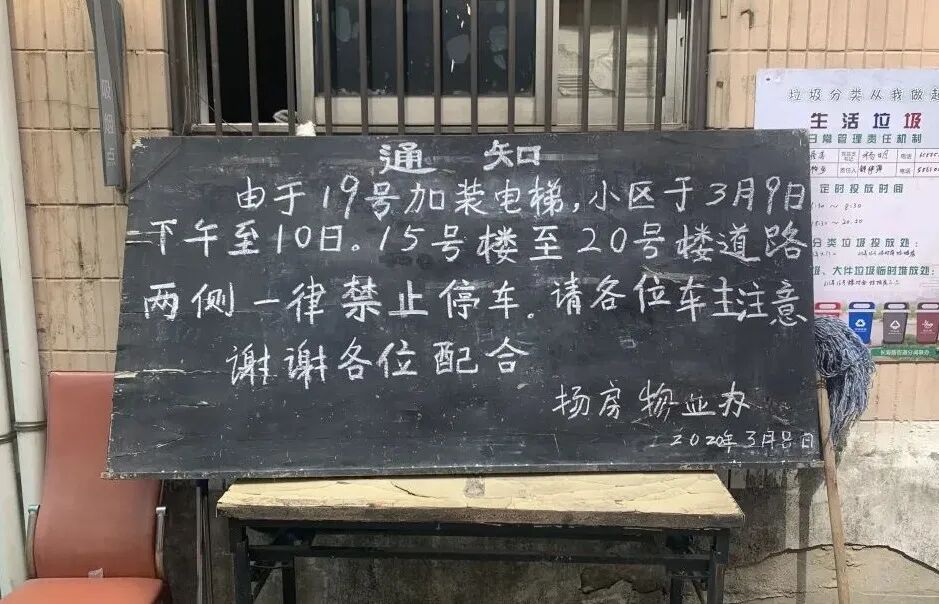 吸烟点
通知
由于19号加装电梯,小区于3月9日
下午至10日。15号楼至20号楼道路
两侧一律禁止停车.请各位车主注意
谢谢各位配合
扬房物业办
2020年3月8日
垃圾分类从我做起
生活垃圾
日常管理责任机制
电话
责任人
电话
定时投放时间
分类垃圾投放处:
圾、大件垃圾临时堆放处: